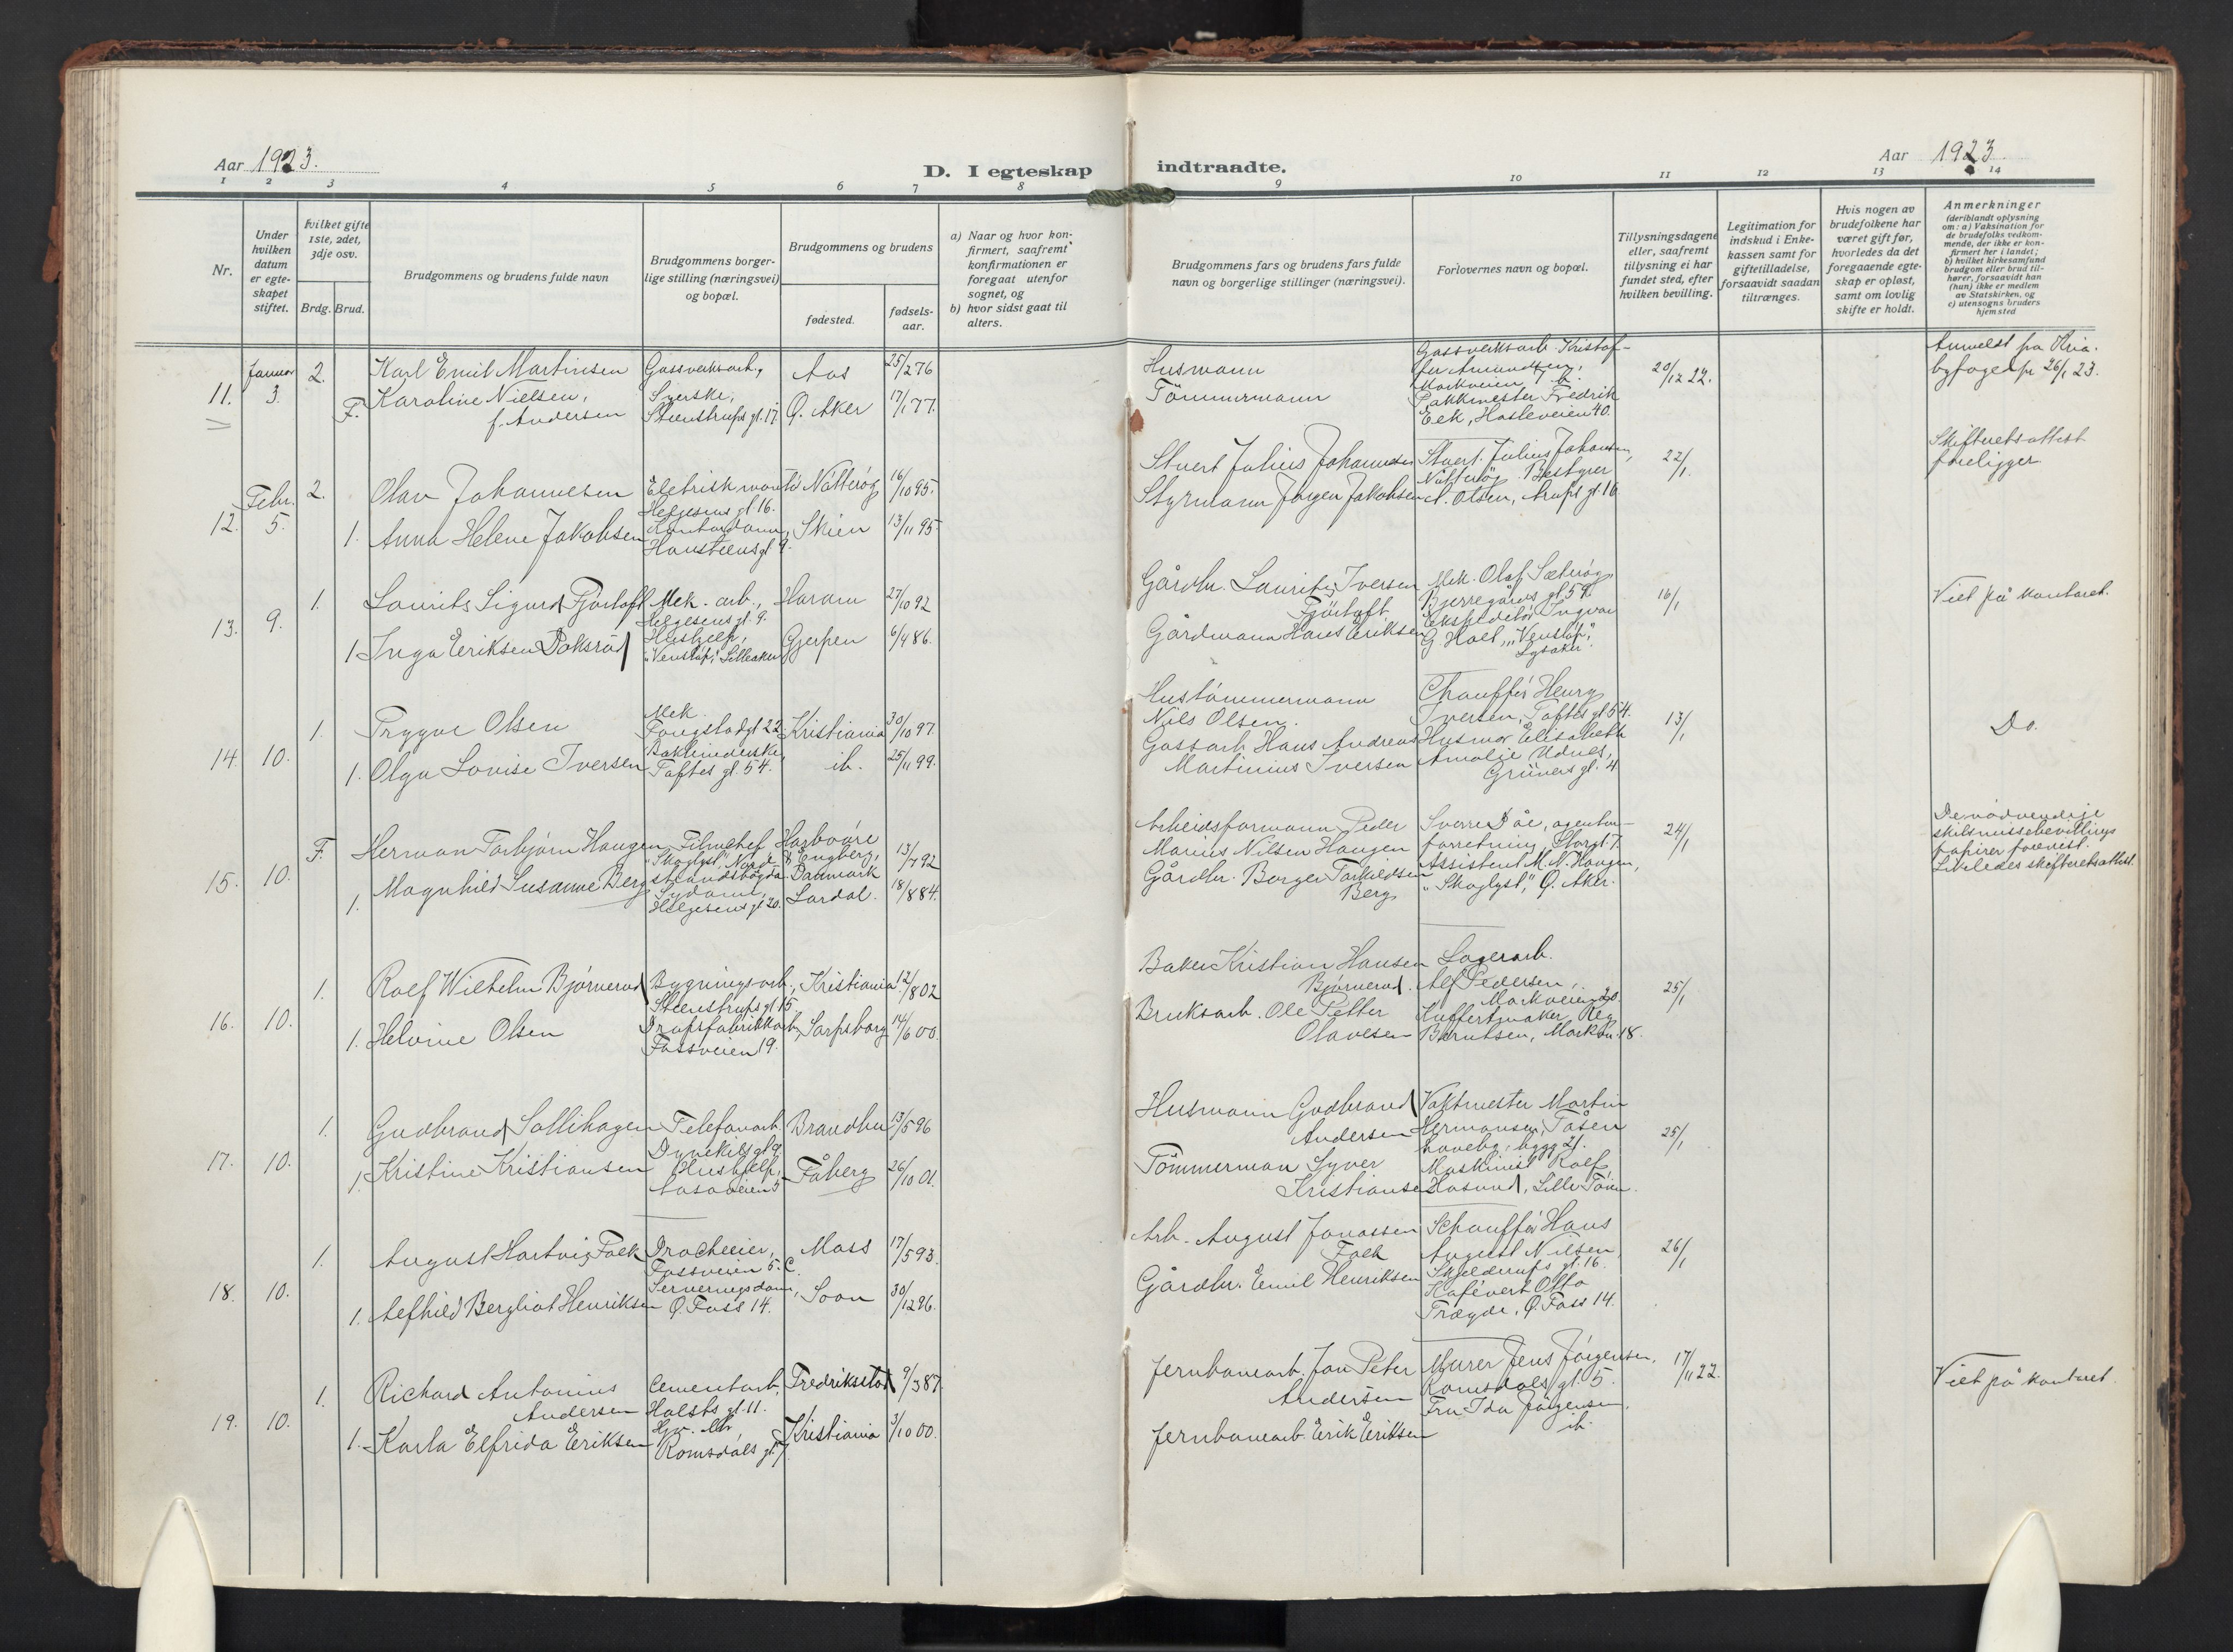 Aar 1923.
D. I egteskap indtraadte.
Aar 1923
1 2 3 4 5 6 7 8 9 10 11 12 13 14
Nr.
Under hvilken datum er egteskapet stiftet.
Hvilket gifte 1ste, 2det, 3dje osv.
Brdg. Brud.
Brudgommens og brudens fulde navn
Brudgommens borgerlige stilling (næringsvei) og bopæl.
Brudgommens og brudens
fødested.
fødsels-aar.
a) Naar og hvor konfirmert, saafremt konfirmationen er foregaat utenfor sognet, og
b) hvor sidst gaat til alters.
Brudgommens fars og brudens fars fulde navn og borgerlige stillinger (næringsvei).
Forlovernes navn og bopæl.
Tillysningsdagene eller, saafremt tillysning ei har fundet sted, efter hvilken bevilling.
Legitimation for indskud i Enkekassen samt for giftetilladelse, forsaavidt saadan tiltrænges.
Hvis nogen av brudefolkene har været gift før, hvorledes da det foregaaende egteskap er opløst, samt om lovlig skifte er holdt.
Anmerkninger
(deriblandt oplysning om: a) Vaksination for de brudefolks vedkommende, der ikke er konfirmert her i landet; b) hvilket kirkesamfund brudgom eller brud tilhører, forsaavidt han (hun) ikke er medlem av Statskirken, og c) utensogns bruders hjemsted
11. Januar 3. 2. Karl Emil Martinsen Gassverksarb., Aas 25/2 76 Husmann
F. Karoline Nielsen, f. Andersen Syerske, Steenstrups gt. 17. Ø. Aker 17/1 77. Tömmermann
Gassverksarb. Kristoffer Amundsen, Markveien 7 b.
Pakkmester Fredrik Eek, Hasleveien 40.
20/12 22.
Anmeldt fra Kria. byfoged pr 26/1 23.
12. Febr. 5. 2. Olav Johannesen Eletrisk mont. Helgesens gt 16. Nötteröy 16/10 95. Stuert Julius Johannesen
1. Anna Helene Jakobsen Kontordame, Hansteens gt. 9. Skien 13/11 95 Styrmann Jørgen Jakobsen
Stuert. Julius Johansen, Nötteröy. Bestyrer A. Olsen, Arups gt. 16
22/1.
Skifteretsattest foreligger.
13. 9. 1. Laurits Sigurd Fjörtoft Mek. arb., Helgesens gt. 9. Haram 27/10 92 Gårdbr. Laurits Iversen Fjörtoft
1 Inga Eriksen Doksröd Hushjelp, "Venstöp," Lilleaker Gjerpen 6/4 86. Gårdmann Hans Eriksen
Mek. Olaf Sæteröy Bjerregårds gt. 59.
Ekspeditör Ingvar G. Hoel, "Venstöp," Lysaker.
16/1
Viet på kontoret.
14. 10. 1. Trygve Olsen Mek. Fougstadgt 22 Kristiania 30/10 97. Hustömmermann Nils Olsen.
1. Olga Lovise Iversen Toftes gt. 54. ib. 25/11 99. Gassarb. Hans Andreas Martinius Iversen
Chaufför Henry Iversen, Toftes gt 54.
Husmor Elisabeth Amalie Udnes, Grüners gt. 4.
13/1
Do.
15. 10. F. Herman Torbjörn Haugen Filmchef "Skoglyst," Nordstrandshögda Harboöre & Engberg, Danmark 13/7 92 Arbeidsformann Peder Marius Nilsen Haugen
1. Magnhild Susanne Berg Sydame, Helgesens gt 20. Lardal. 18/8 84. Gårdbr. Borger Torkildsen Berg
Sverre Döe, agenturforretning, Storgt. 7.
Assistent M. N. Haugen, "Skoglyst," Ø. Aker.
24/1
De nödvendige skilsmissebevillings papirer forevist. Likeledes skifteretsattest.
16. 10. 1. Rolf Wilhelm Björnerud Bygningsarb., Steenstrups gt 15. Kristiania 12/8 02 Baker Kristian Hansen Björnerud.
1. Helvine Olsen Dropsfabrikkarb., Fossveien 19. Sarpsborg 14/6 00. Bruksarb. Ole Petter Olavesen
Lagerarb. Alf Pedersen, Markveien 20.
Kuffertmaker Reg. Berntsen, Markv. 18.
25/1
17. 10. 1. Gudbrand Sollihagen Telefonarb. Dynekilsgt 9. Brandbu 13/5 96 Husmann Gudbrand Andersen
1. Kristine Kristiansen Hushjelp, Aasaveien 5 Fåberg 26/10 01. Tömmerman Syver Kristiansen
Vaktmester Martin Hermansen, Tåsen haveby, bygg 21.
Maskinist Rolf Hasund, Lille Töien.
25/1
18. 10. 1. August Hartvig Falk Dracheier, Fossveien 5. C. Moss 17/5 93. Arb. August Jonassen Falk
1. Alfhild Bergliot Henriksen Serveringsdame, Ø. Foss 14. Soon 30/12 96. Gårdbr. Emil Henriksen
Schaufför Hans August Nilsen Skjelderups gt. 16.
Kafévert Otto Trægde, Ø. Foss 14.
26/1
19. 10. 1. Richard Antonius Andersen Cementarb., Holsts gt. 11. Fredrikstad 9/3 87. Jernbanearb. Jon Peter Andersen
1. Karla Elfrida Eriksen Hjv. Romsdals gt. 7. Kristiania 3/10 00. Jernbanearb. Erik Eriksen
Murer Jens Jörgensen, Romsdals gt. 5.
Fru Ida Jörgensen, ib.
17/11 22.
Viet på kontoret.